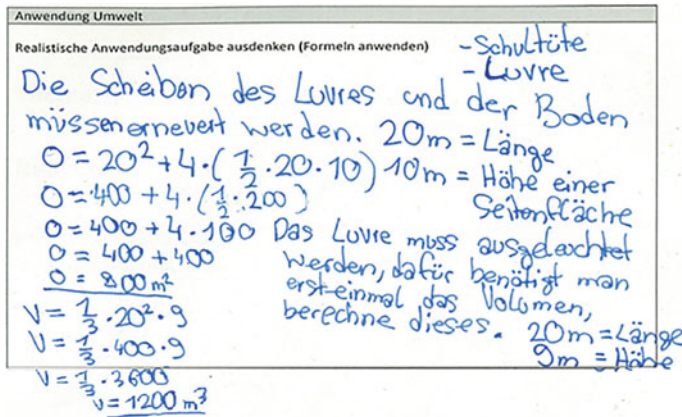 Anwendung Umwelt
Realistische Anwendungsaufgabe ausdenken (Formeln anwenden)
- Schultüte
- Luvre
Die Scheiben des Luvres und der Boden
müssen erneuert werden. 20m = Länge
10m = Höhe einer
Seitenfläche
O = 20² + 4 · (1/2 · 20 · 10)
O = 400 + 4 · (1/2 · 200)
O = 400 + 4 · 100
O = 400 + 400
O = 800 m²
Das Luvre muss ausgeleuchtet
werden, dafür benötigt man
erst einmal das Volumen,
berechne dieses. 20m = Länge
9m = Höhe
V = 1/3 · 20² · 9
V = 1/3 · 400 · 9
V = 1/3 · 3600
V = 1200 m³